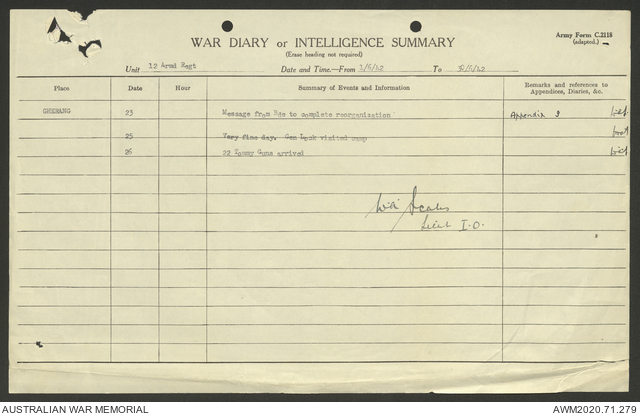 Army Form C.2118
(adapted.)
WAR DIARY or INTELLIGENCE SUMMARY
(Erase heading not required)
Unit 12 Armd Regt Date and Time.—From 1/5/42 To
Place Date Hour Summary of Events and Information Remarks and references to Appendices, Diaries, &c.
GHERANG 23 Message from Bde to complete reorganization Appendix 3
25 Very fine day. Gen Look visited camp
26 22 Tommy Guns arrived
Lieut I.O.
AUSTRALIAN WAR MEMORIAL AWM2020.71.279